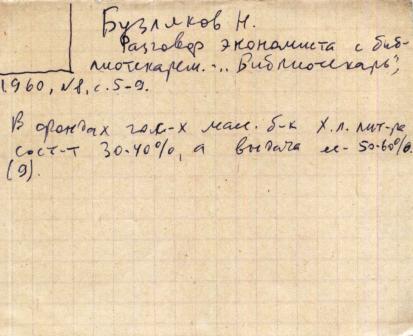 Бузляков Н.
Разговор экономиста с биб-
лиотекарем. - „Библиотекарь",
1960, №1, с.5-9.
В фондах гос-х мас. б-к х.л. лит-ра
сост-т 30-40%, а выдача её - 50-60%.
(9).